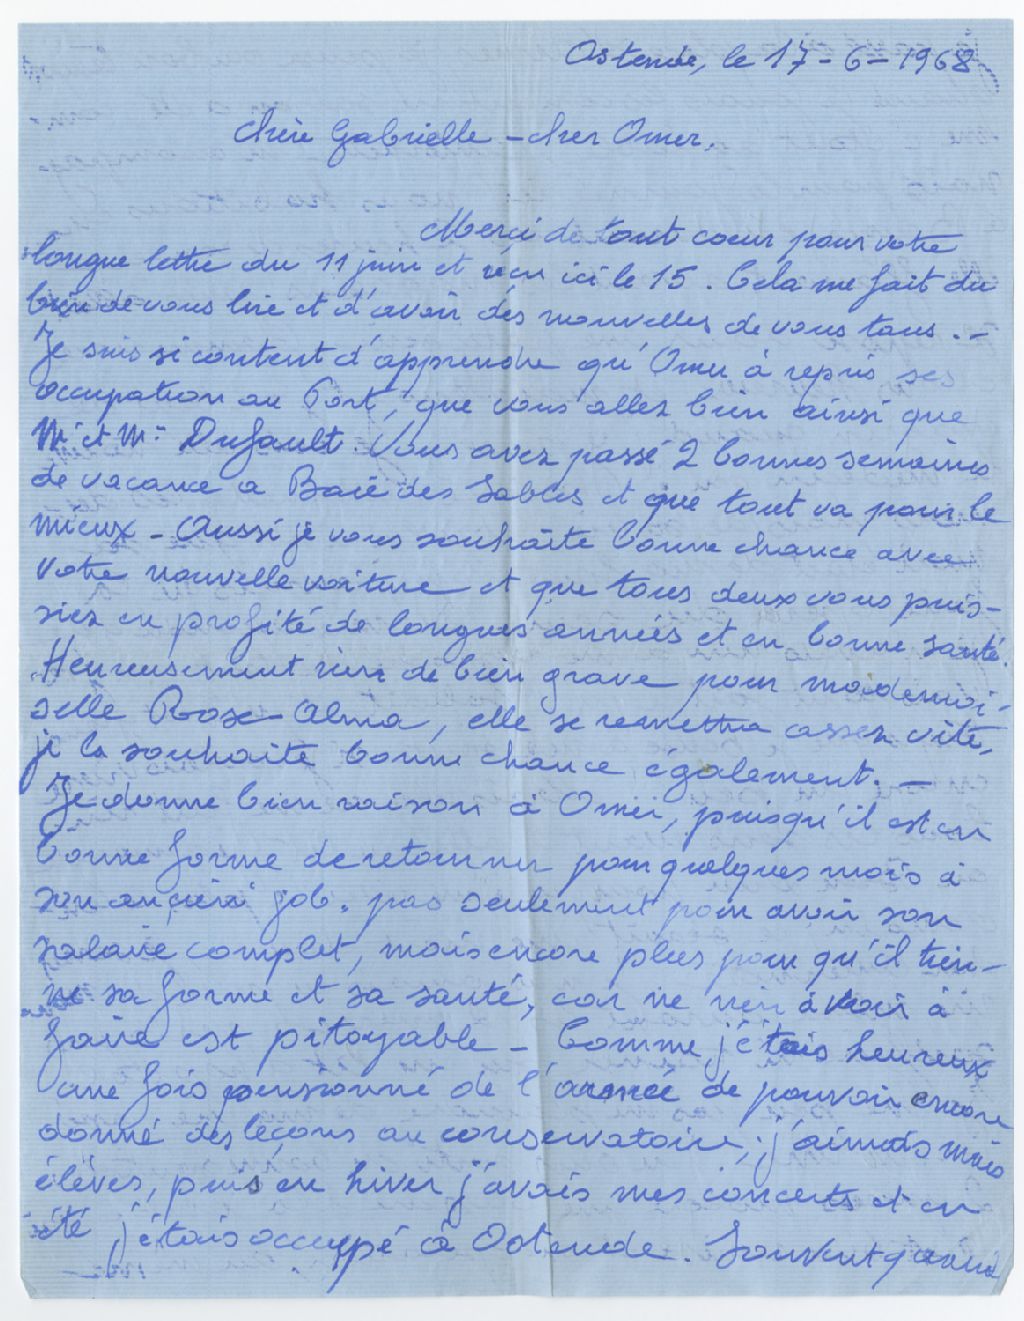 Ostende, le 17-6-1968
Chère Gabrielle - cher Omer.
Merci de tout coeur pour votre
longue lettre du 11 juin et reçu ici le 15. Cela me fait du
bien de vous lire et d'avoir des nouvelles de vous tous. -
Je suis si content d'apprendre qu'Omer à repris ses
occupation au Port, que vous allez bien ainsi que
Mr et Me Dufault. Vous avez passé 2 bonnes semaines
de vacance a Baie des Sables et que tout va pour le
mieux - Aussi je vous souhaite bonne chance avec
votre nouvelle voiture et que tous deux vous puis-
siez en profité de longues années et en bonne santé.
Heureusement rien de bien grave pour mademoi-
selle Rose-Alma, elle se remettra assez vite,
je la souhaite bonne chance également. -
Je donne bien raison à Omer, puisqu'il est en
bonne forme de retourner pour quelques mois à
son ancien job. pas seulement pour avoir son
salaire complet, mais encore plus pour qu'il tien-
ne sa forme et sa santé, car ne rien avoir à
faire est pitoyable - Comme j'étais heureux
une fois pensionné de l'armée de pouvoir encore
donné des leçons au conservatoire, j'aimais mes
élèves, puis en hiver j'avais mes concerts et en
été j'étais occupé à Ostende. Souvent quand